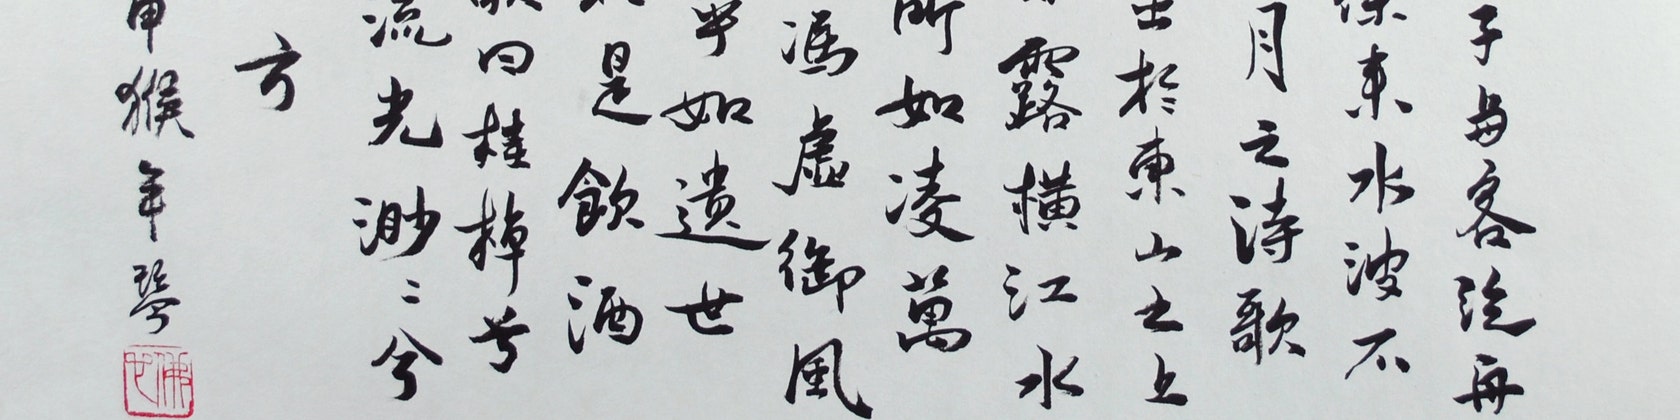 子与客泛舟
來水波不
月之詩歌
出於東山之上
露橫江水
所如凌萬
馮虛御風
乎如遺世
是飲酒
歌曰桂棹兮
流光渺〻兮
方
申猴年